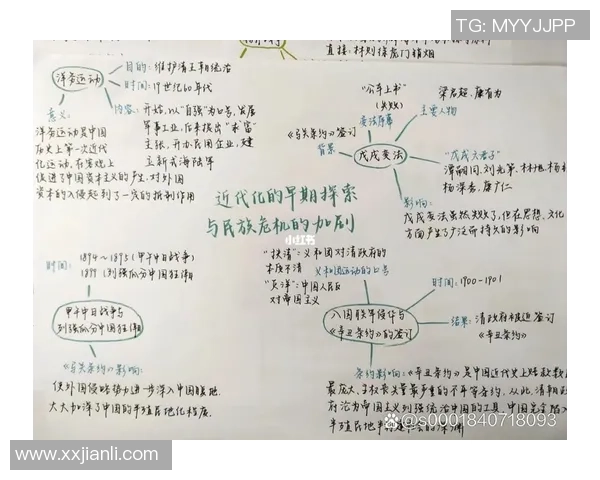 TG: MYYJJPP
直接：林则徐虎门销烟
洋务运动
目的：维护清王朝统治
时间：19世纪60年代
内容：开始，以"自强"为口号，发展
军事工业，后来提出"求富"
主张，开办民用企业，建
立新式海陆军
意义：
洋务运动是中国
历史上第一次近代
化运动，在客观上
促进了中国资本主义的产生，对外国
资本的入侵起到了一定的抵制作用
"公车上书"
（失败）
变法序幕
梁启超、康有为
主要人物
《马关条约》签订
背景
戊戌变法
"戊戌六君子"
谭嗣同、刘光第、林旭、杨
杨深秀、康广仁
影响：
戊戌变法虽然失败了，但在思想、文化
方面产生了广泛而持久的影响
近代化的早期探索
与民族危机的加剧
小红书
时间：
1894～1895（甲午中日战争）
1899（列强瓜分中国狂潮）
甲午中日战争与
列强瓜分中国狂潮
《马关条约》影响：
使外国侵略势力进一步深入中国腹地
大大加深了中国的半殖民地化程度
"扶清"：义和团对清政府的
本质不清
"灭洋"：中国人民反
对帝国主义
义和团运动的口号
时间：1900-1901
八国联军侵华与
《辛丑条约》的签订
结果：清政府被迫签订
《辛丑条约》
条约影响：《辛丑条约》是中国近代史上赔款数
最庞大、主权丧失最严重的不平等条约，从此，清朝
府沦为帝国主义列强统治中国的工具，中国完全陷入
半殖民地半封建社会的深渊
@s0001840718093
www.xxjianli.com